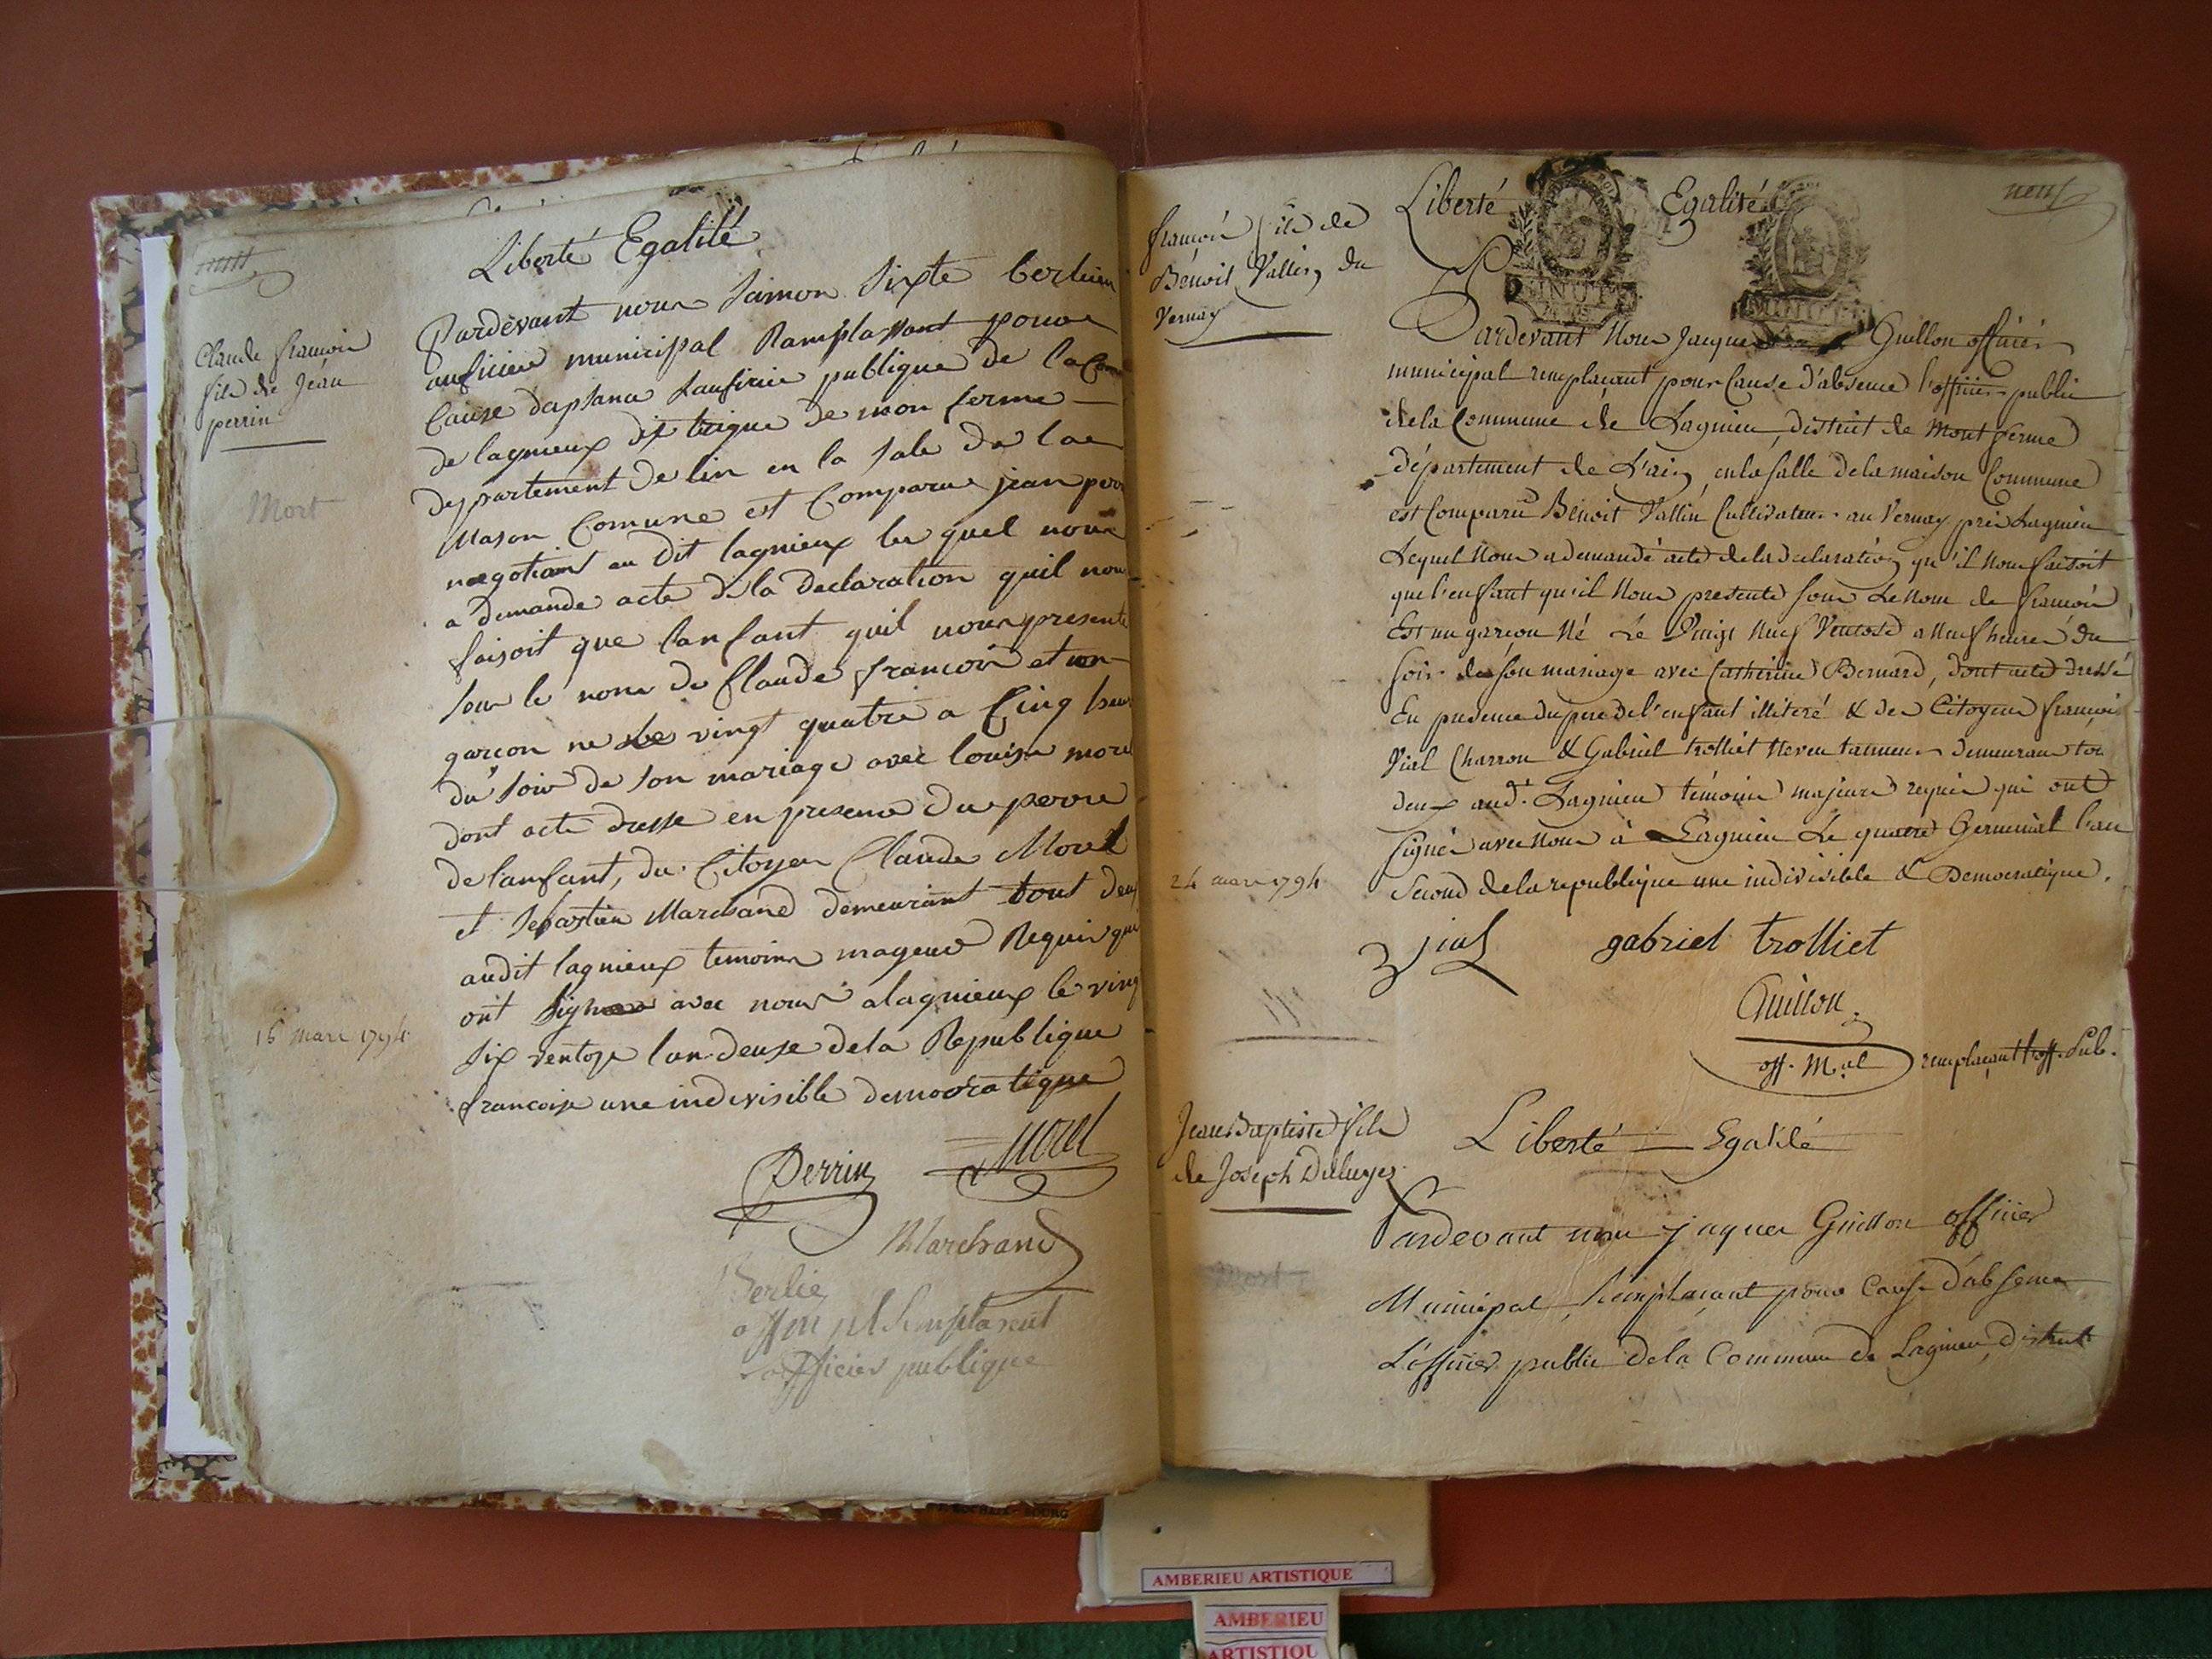 huit
Liberté Egalité
Claude francois
fils de Jean
perrin
Mort
Pardevant nous Simon Sixte berlien
municipal Ramplassant pour
Cause publique de la Com
de lagnieux de mon ferme
departement de lin en la sale de la
Mason Comune est Comparue jean per
negotiant au dit lagnieux le quel nous
a demande acte de la declaration quil nous
faisoit que lanfant quil nous presente
sous le nom de Claude francois et un
garcon ne le vingt quatre a Cinq heur
du soir de son mariage avec louise morel
dont acte dresse en presence du perre
de lanfant, du Citoyen Claude Morel
et Sebastien Marchand demeurant tout deux
audit lagnieux temoins mageur Requis qui
ont signe avec nous a lagnieux le ving
16 mars 1794
six ventose lan deuxe dela Republique
francoise une indivisible democratique
Perrin Morel
Marchand
Berlie
off m pl Remplasant
officier publique
neuf
Liberté Egalité
françois fils de
Benoit Vallin du
Vernay
MINUTE
MINUTE
Pardevant Nous Jacques Guillon officier
municipal remplaçant pour Cause d'absence l'officier public
de la Commune de Lagnieu, district de Mont ferme
département de L'ain, en la salle de la maison Commune
est Comparu Benoit Vallin Cultivateur au Vernay près Lagnieu
Lequel Nous a demandé acte de la declaration qu'il nous faisoit
que l'enfant qu'il Nous presente sous Le nom de françois
Est un garçon Né Le Vingt Neuf Ventose a Neuf heures du
soir de son mariage avec Catherine Bernard, dont acte dressé
En presence du pere de l'enfant illiteré & des Citoyens françois
Vial Charron & Gabriel trolliet Neveu tanneur demeurans tou
deux aud. Lagnieu témoins majeurs requis qui ont
signés avec Nous à Lagnieu Le quatre Germinal l'an
24 mars 1794
Second de la republique une indivisible & Democratique.
Vial gabriel trolliet
Guillon
off. M.al remplaçant l'off. Pub.
Jean Baptiste fils
de Joseph
Liberté — Egalité
Mort
Pardevant nous jaques Guillon officier
Municipal, Remplaçant pour Cause d'absence
L'officier public de la Commune de Lagnieu, district
AMBERIEU ARTISTIQUE
AMBERIEU
ARTISTIQU